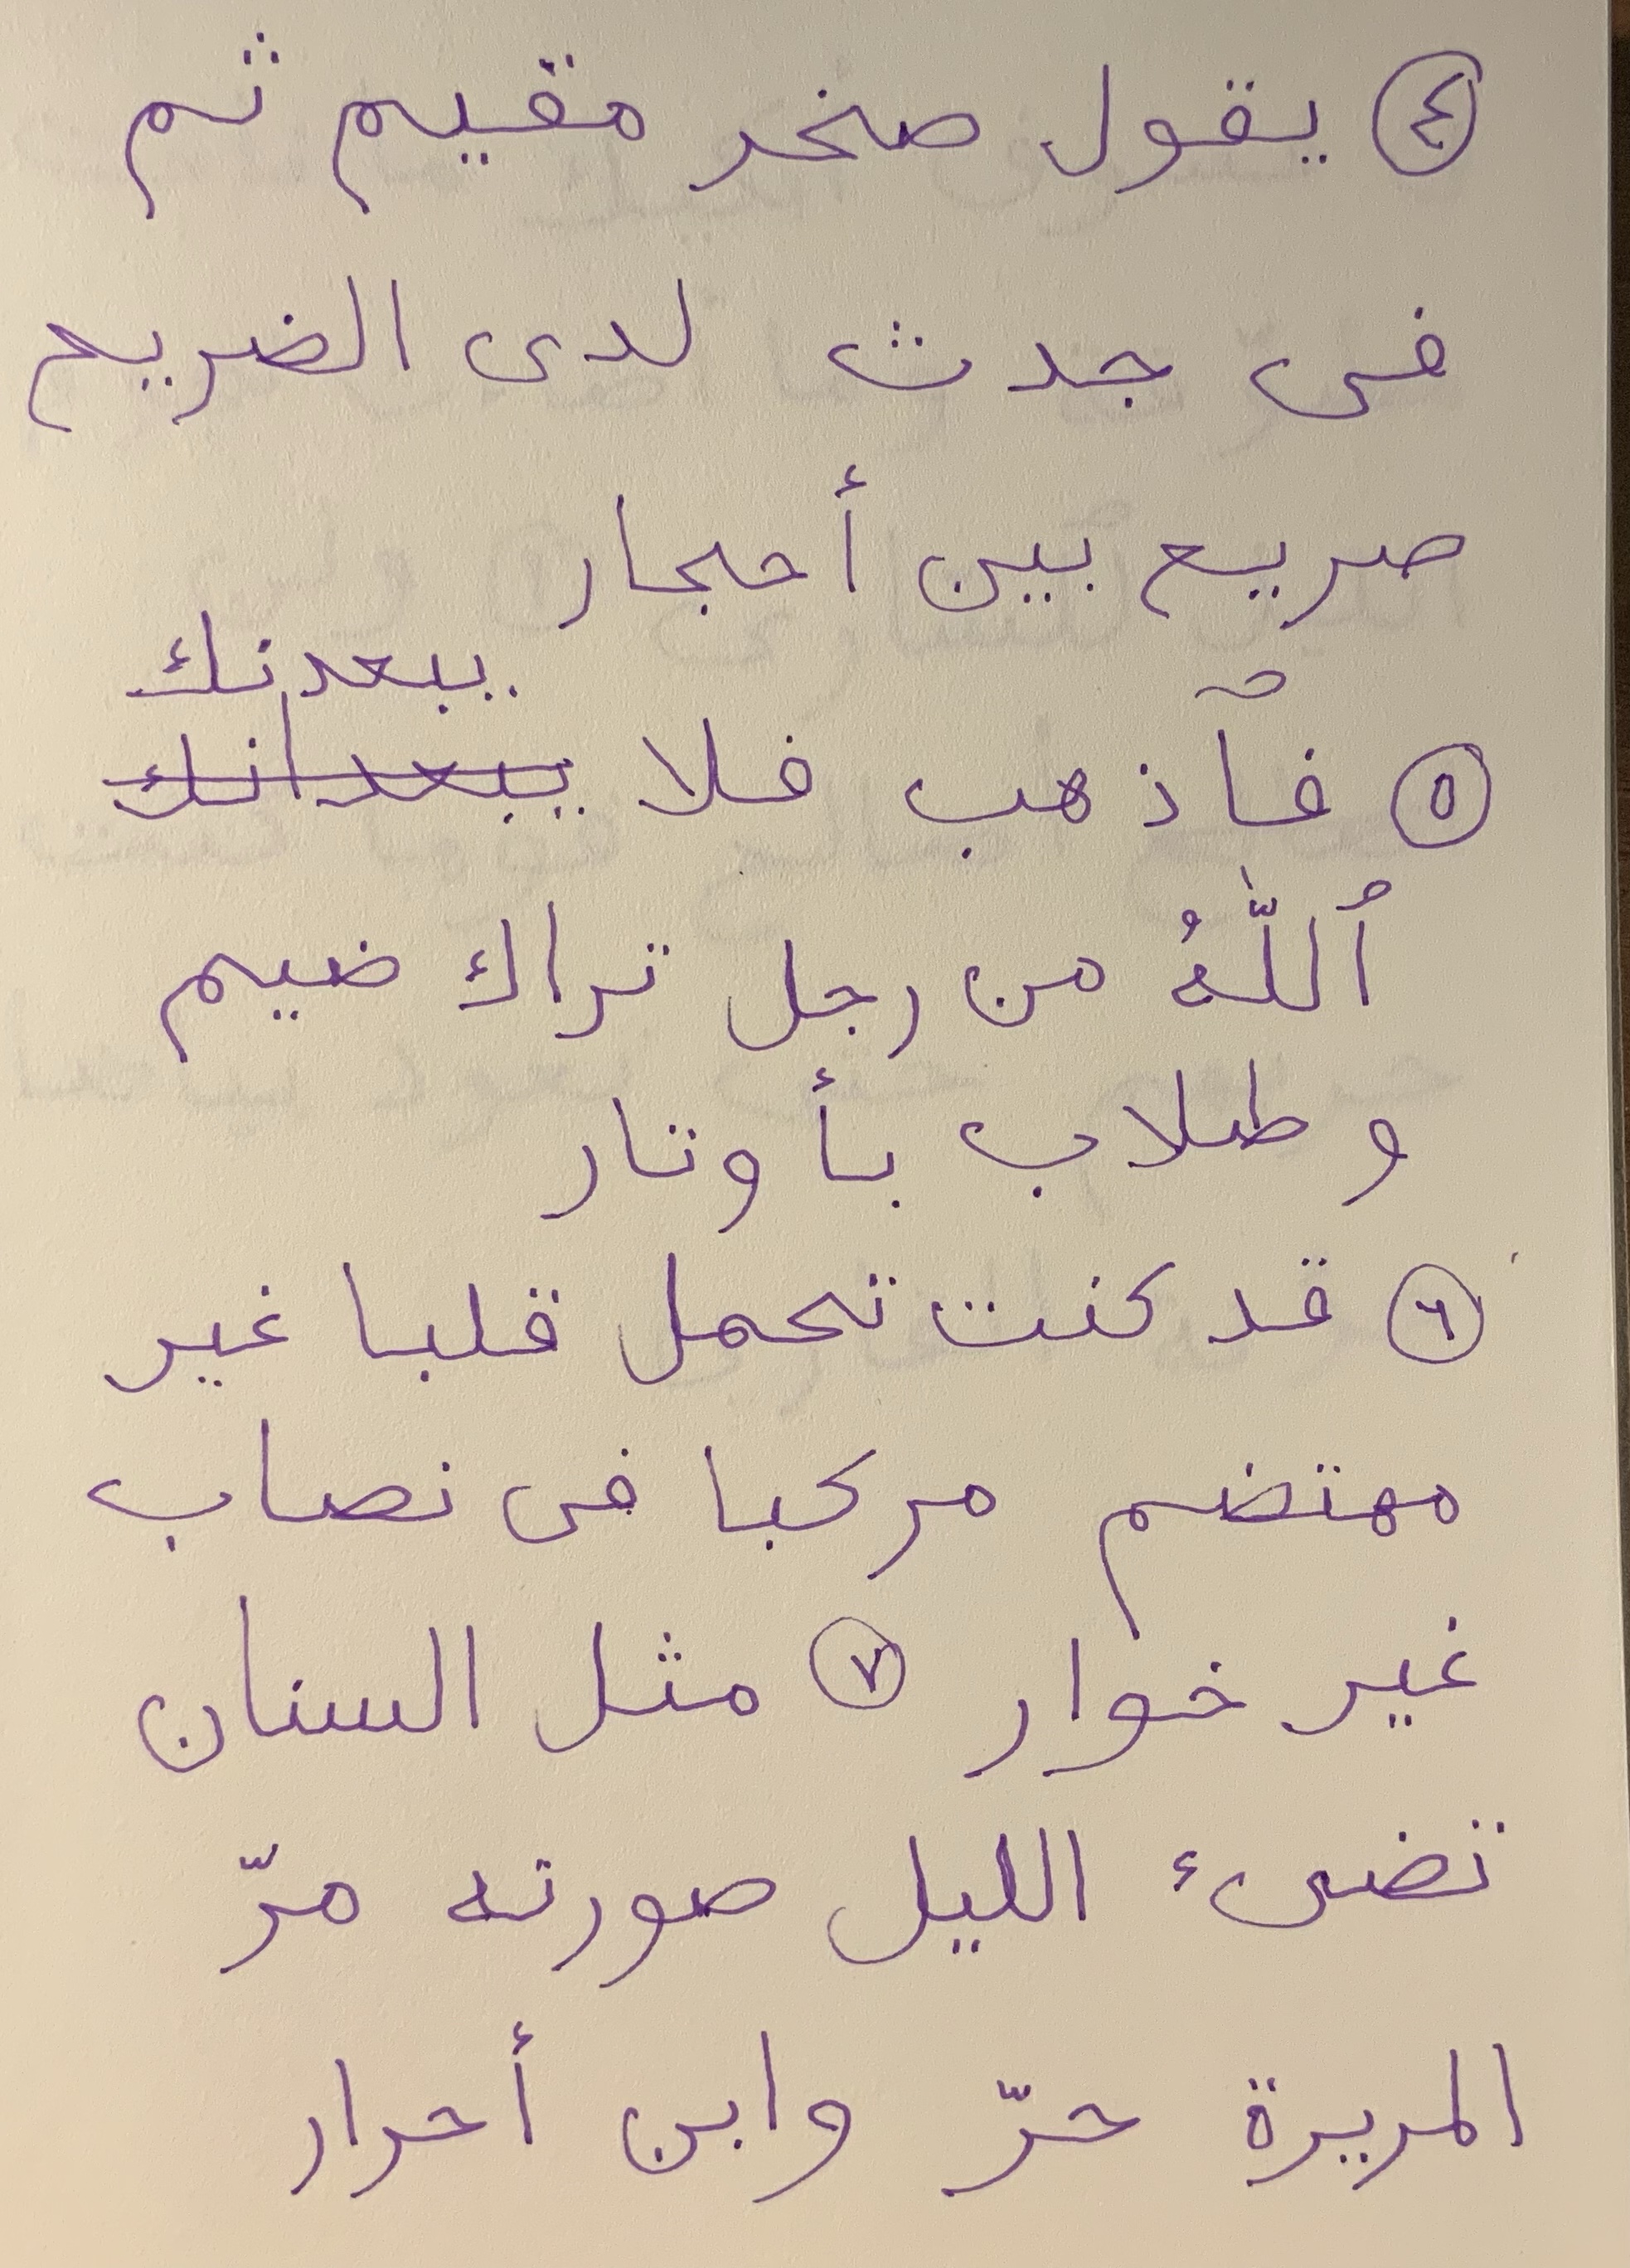 ٤ يقول صخر مقيم ثم
فى جدث لدى الضريح
صريع بين أحجار
يبعدنك
٥ فٱذهب فلا يبعدانك
ٱللّٰهُ من رجل تراك ضيم
وطلاب بأوتار
٦ قد كنت تحمل قلبا غير
مهتضم مركبا فى نصاب
غير خوار ٧ مثل السنان
تضىء الليل صورته مرّ
المريرة حرّ وابن أحرار